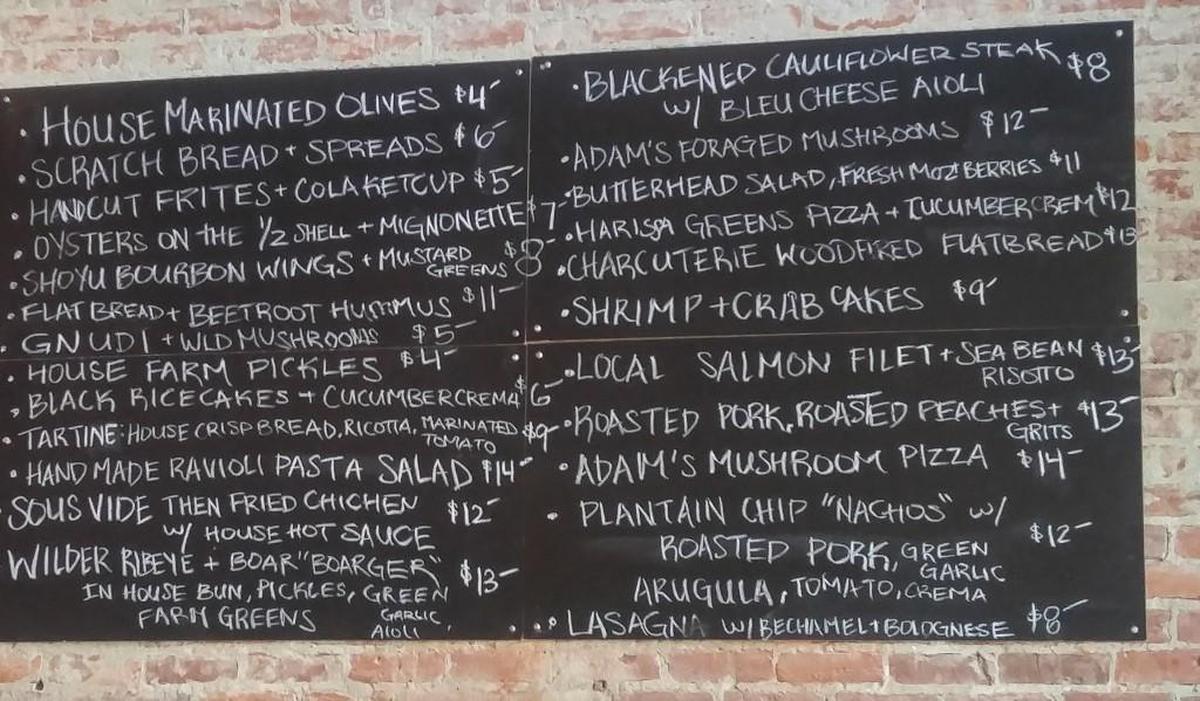 · HOUSE MARINATED OLIVES $4-
· SCRATCH BREAD + SPREADS $6-
· HANDCUT FRITES + COLA KETCUP $5-
· OYSTERS ON THE 1/2 SHELL + MIGNONETTE $7-
· SHOYU BOURBON WINGS + MUSTARD $8-
GREENS
· FLAT BREAD + BEETROOT HUMMUS $11-
· GNUDI + WLD MUSHROOMS $5-
· HOUSE FARM PICKLES $4-
· BLACK RICECAKES + CUCUMBERCREMA $6-
· TARTINE: HOUSE CRISP BREAD, RICOTTA, MARINATED $9-
TOMATO
· HAND MADE RAVIOLI PASTA SALAD $14-
SOUS VIDE THEN FRIED CHICHEN $12-
W/ HOUSE HOT SAUCE
WILDER RIBEYE + BOAR "BOARGER" $13-
IN HOUSE BUN, PICKLES, GREEN
FARM GREENS GARLIC
AIOLI
· BLACKENED CAULIFLOWER STEAK $8
W/ BLEU CHEESE AIOLI
· ADAM'S FORAGED MUSHROOMS $12-
· BUTTERHEAD SALAD, FRESH MOZ + BERRIES $11
· HARISSA GREENS PIZZA + CUCUMBER CREM $12
· CHARCUTERIE WOODFIRED FLATBREAD $13
· SHRIMP + CRAB CAKES $9-
· LOCAL SALMON FILET + SEA BEAN $13-
RISOTTO
· ROASTED PORK, ROASTED PEACHES + $13-
GRITS
· ADAM'S MUSHROOM PIZZA $14-
· PLANTAIN CHIP "NACHOS" W/
ROASTED PORK, GREEN $12-
GARLIC
ARUGULA, TOMATO, CREMA
· LASAGNA W/ BECHAMEL + BOLOGNESE $8-